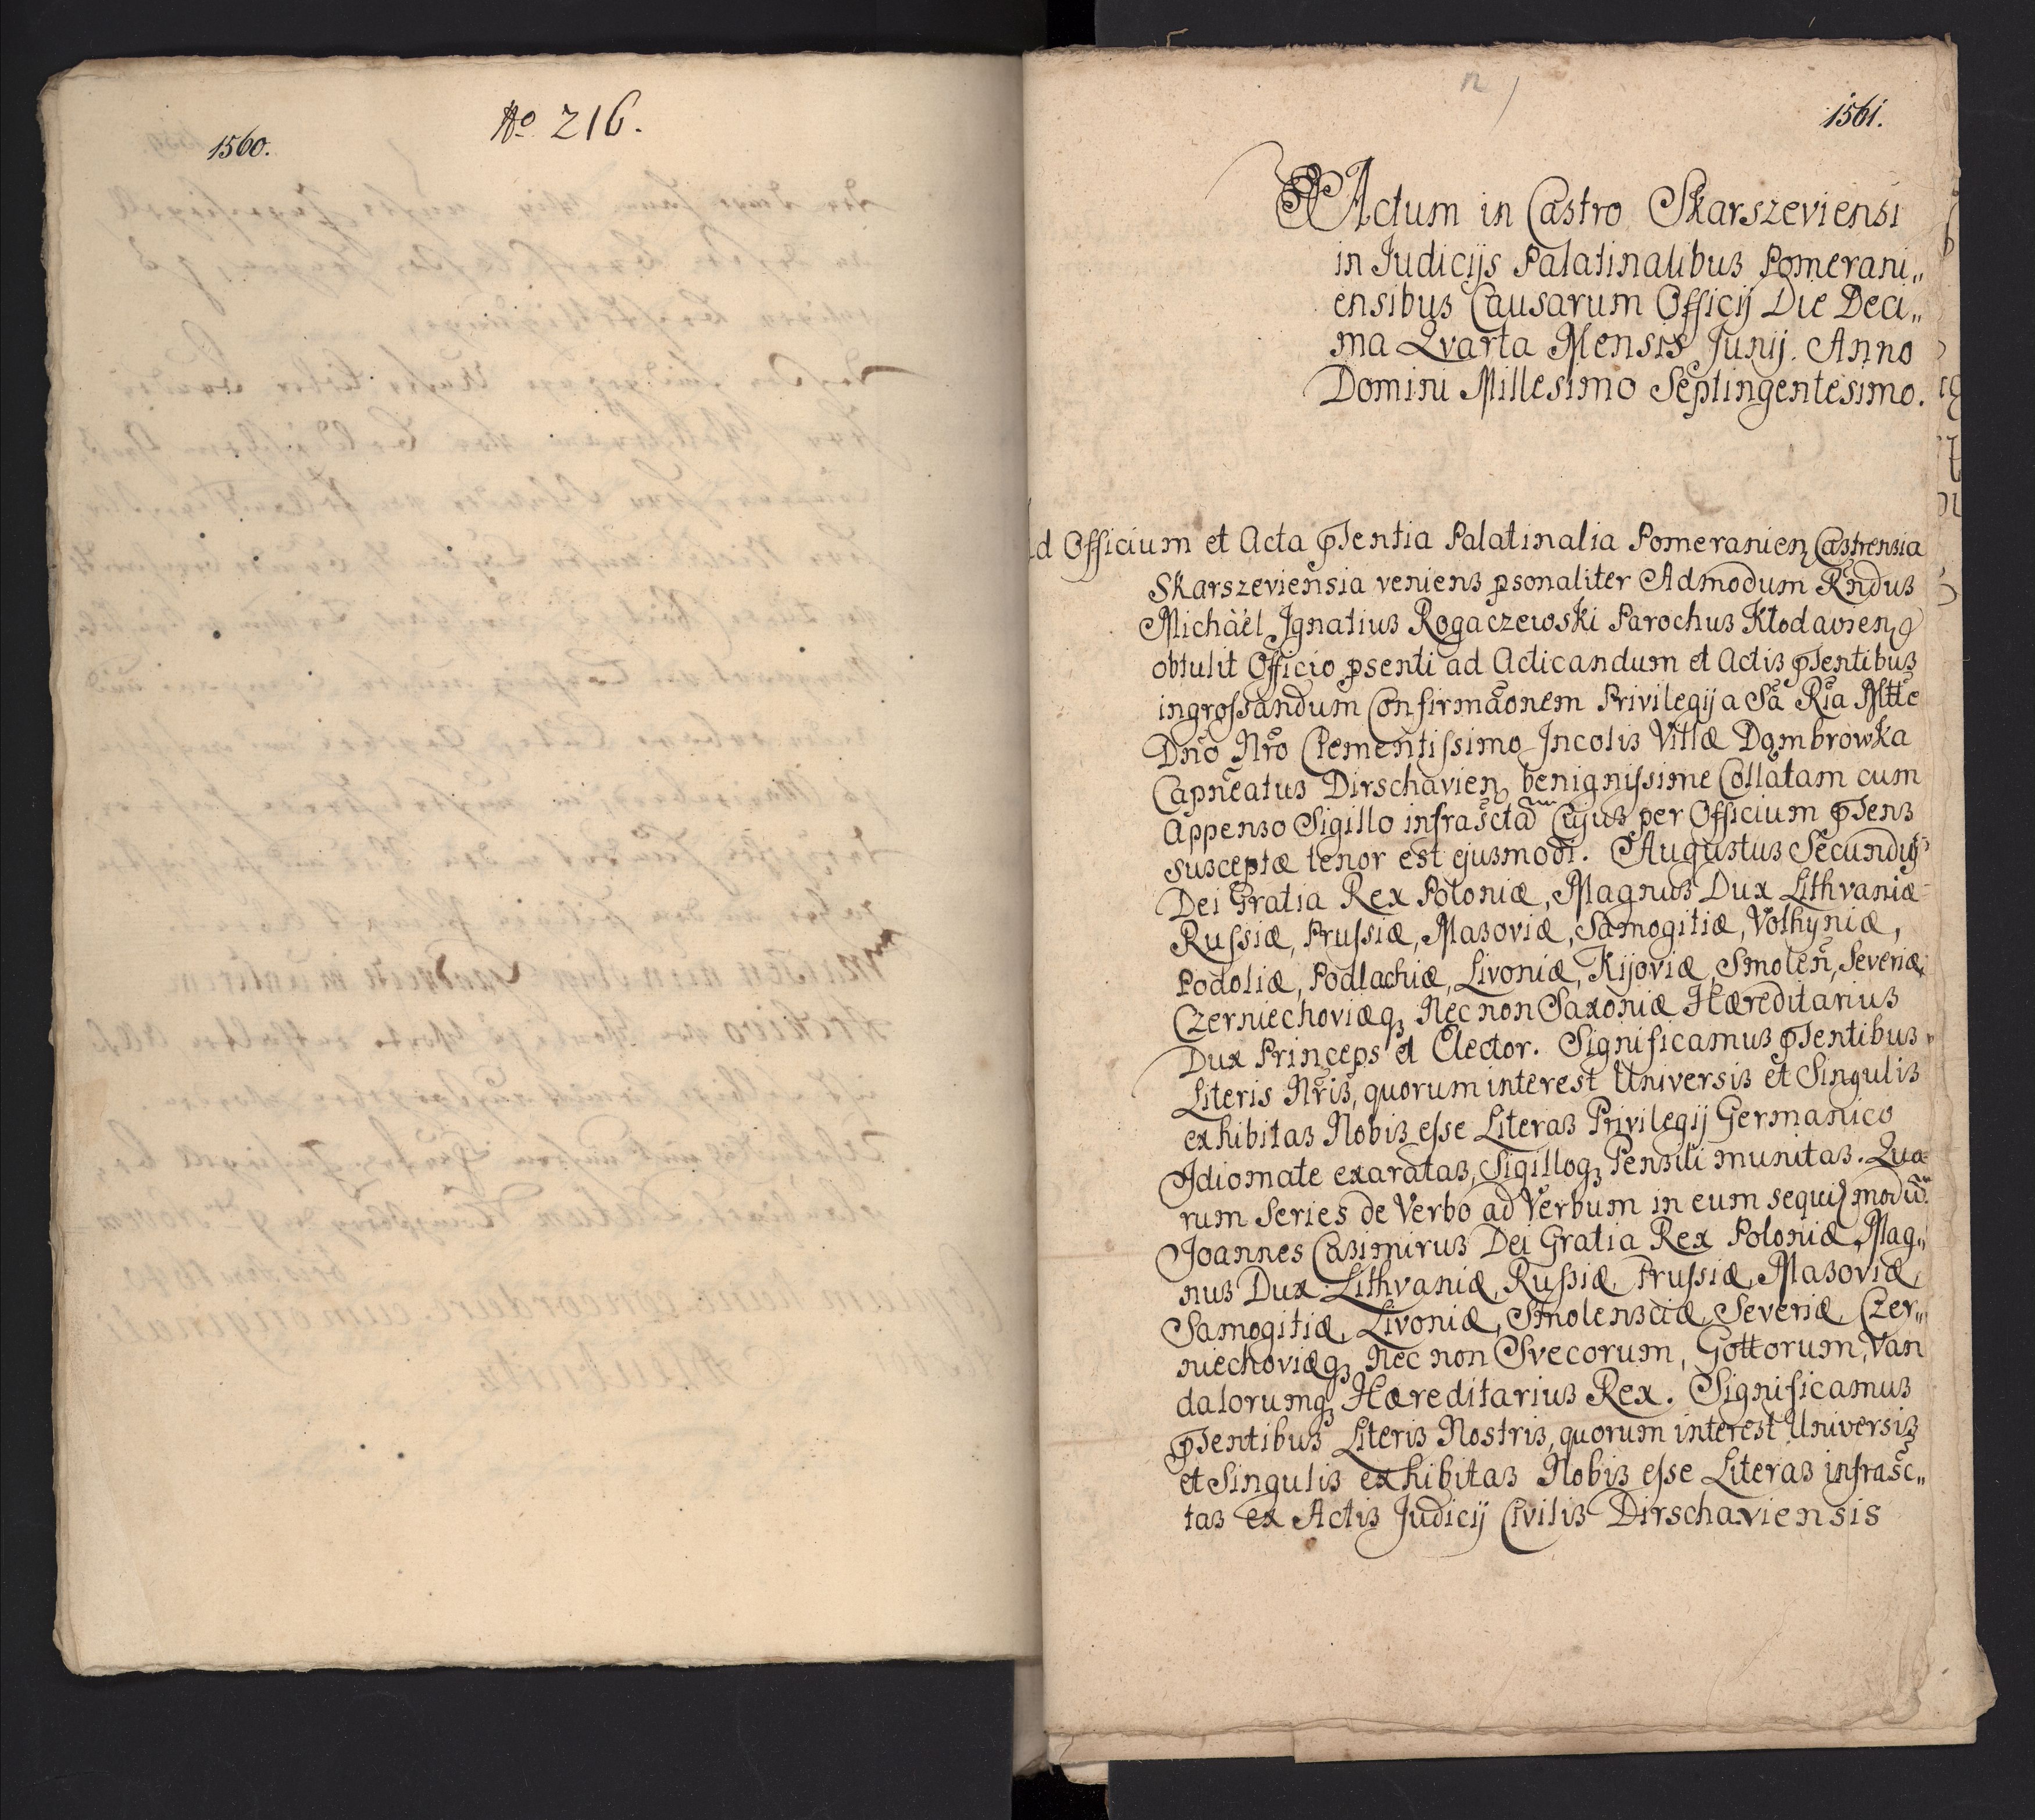 1560.
No 216.
1561.
Actum in Castro Skarszeviensi
in Judicijs Palatinalibus Pomerani„
ensibus Causarum Officij Die Deci„
ma Qvarta Mensis Junij. Anno
Domini Millesimo Septingentesimo.
d Officium et Acta pñtentia Palatinalia Pomeranien Castrensia
Skarszeviensia veniens psonaliter Admodum Rndus
Michàël Ignatius Rogaczewski Parochus Kłodavien
obtulit Officio psenti ad Acticandum et Actis psentibus
ingrossandum Confirmãonem Privilegij a Sã Rĩa Mtte
Dño Nrõ Clementissimo Incolis Villæ Dombrowka
Capneatus Dirschavien benignissime Collatam cum
Appenso Sigillo infrasctã Cujus per Officium psens
susceptæ tenor est ejusmodi. Augustus Secundus
Dei Gratia Rex Poloniæ, Magnus Dux Lithvaniæ
Russiæ, Prussiæ, Masoviæ, Samogitiæ, Volhyniæ,
Podoliæ, Podlachiæ, Livoniæ, Kijoviæ, Smoleñ, Severiæ,
Czerniechoviæq3 Nec non Saxoniæ Hæreditarius
Dux Princeps et Elector. Significamus psentibus
Literis Nris, quorum interest Universis et Singulis
exhibitas Nobis esse Literas Privilegij Germanico
Idiomate exaratas, Sigilloq3 Pensili munitas. Qua
rum Series de Verbo ad Verbum in eum sequi modũ.
Joannes Casimirus Dei Gratia Rex Poloniæ, Mag„
nus Dux Lithvaniæ, Russiæ, Prussiæ, Masoviæ,
Samogitiæ, Livoniæ, Smolensciæ, Severiæ, Czer„
niechoviæq3 Nec non Svecorum, Gottorum, Van
dalorumq3 Hæreditarius Rex. Significamus
psentibus Literis Nostris, quorum interest Universis
et Singulis exhibitas Nobis esse Literas infrasc„
tas ex Actis Judicij Civilis Dirschaviensis